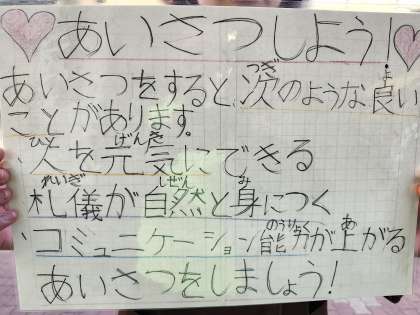 あいさつしよう!
あいさつをすると、次のような良い
ことがあります。
、人を元気にできる
、礼儀が自然と身につく
、コミュニケーション能力が上がる
あいさつをしましょう!